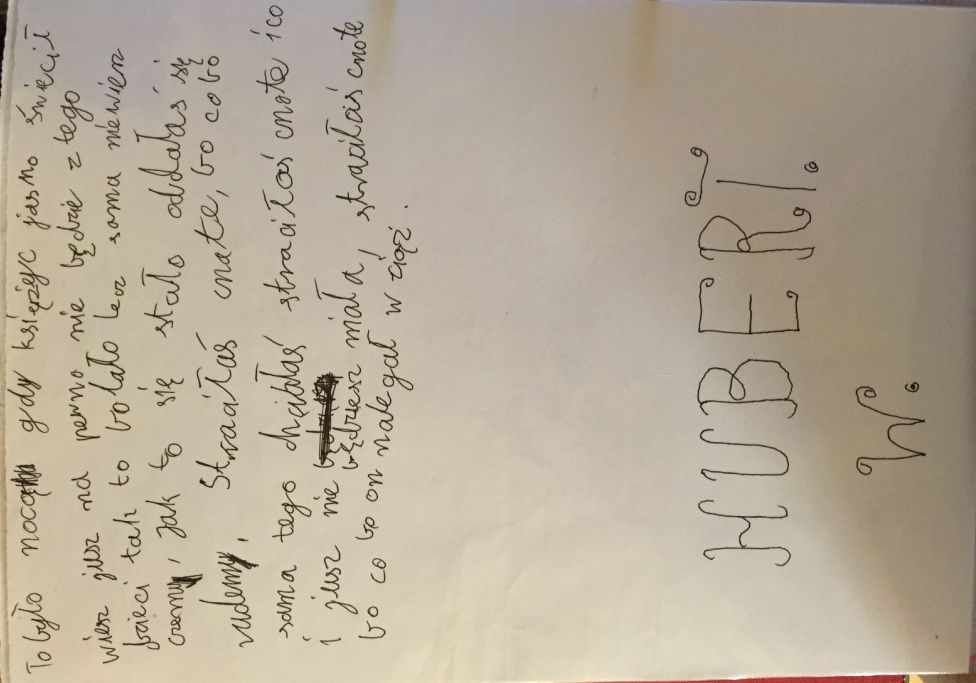 To było nocą gdy księżyc jasno świecił
wiesz jusz na pewno nie będzie z tego
dzieci tak to bolało lecz sama niewiesz
czemu, jak to się stało oddałaś się
Straciłaś cnate, bo co bo
sama tego chciałaś straciłaś cnote i co
i jusz nie będziesz miała, straciłaś cnote
bo co bo on nalegał w ciąż.
HUBERT.
W.